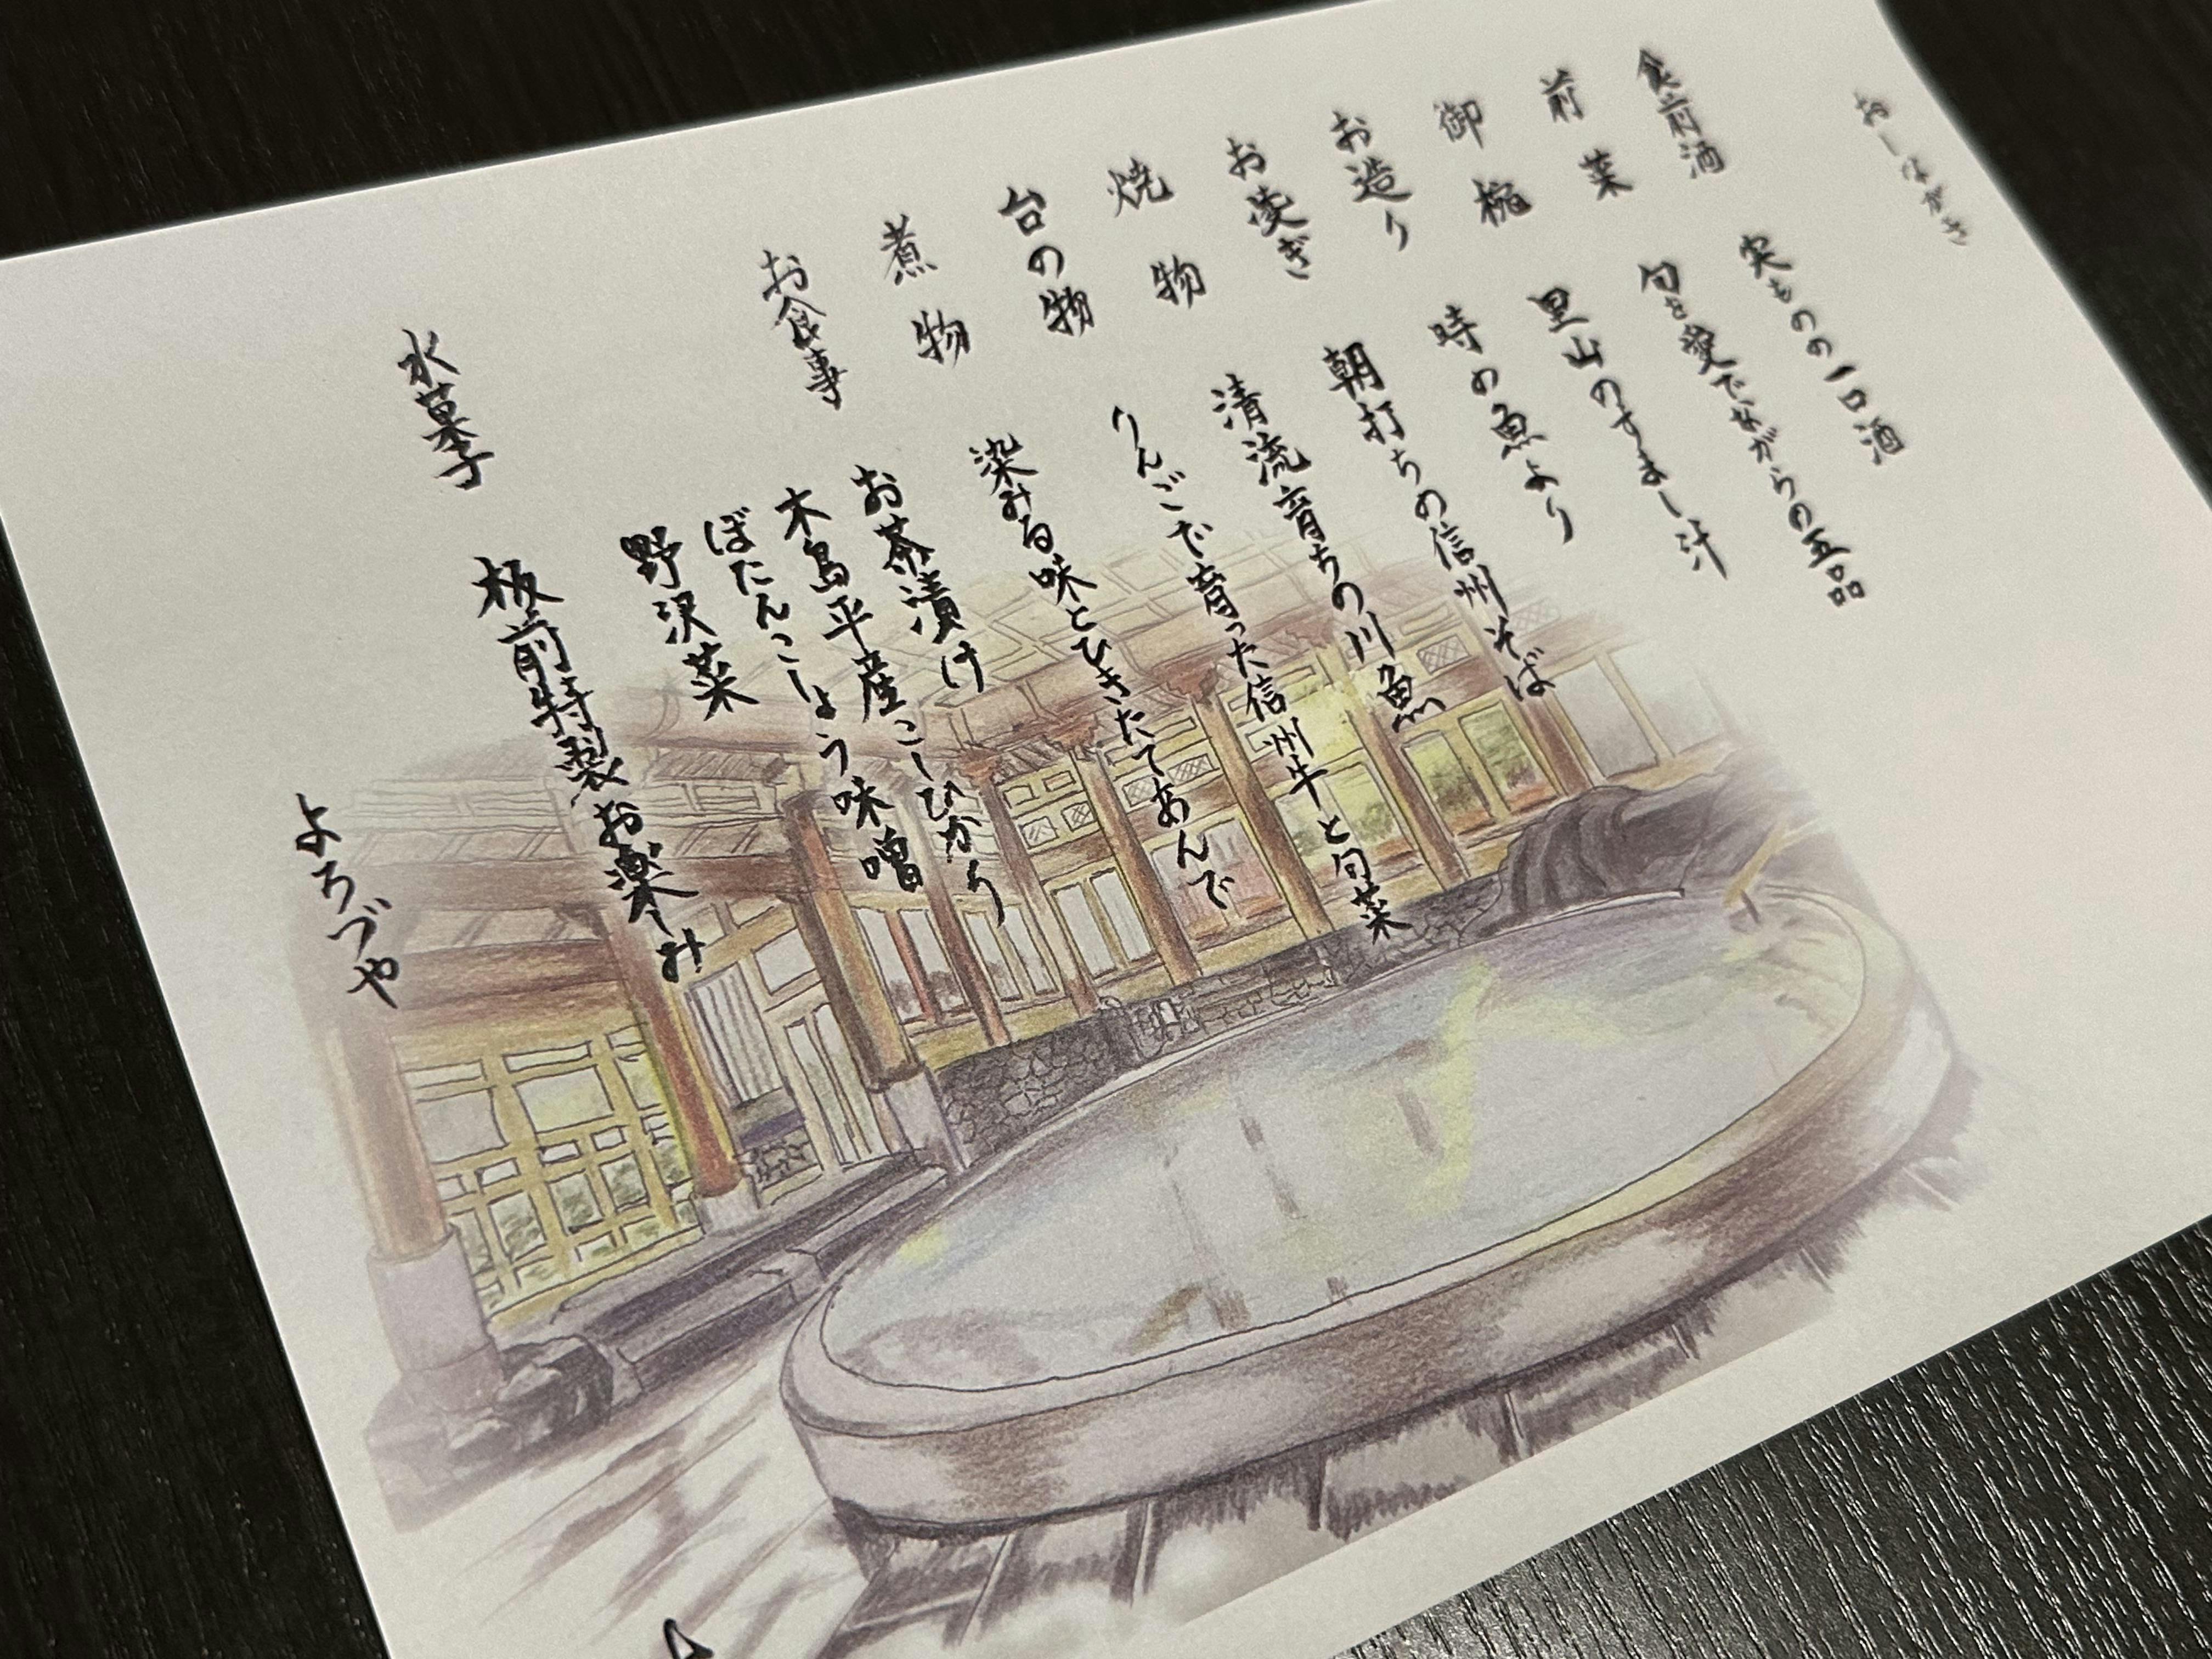 おしながき
食前酒 実ものの一口酒
前菜 旬を愛でながらの五品
御椀 里山のすまし汁
お造り 時の魚より
お凌ぎ 朝打ちの信州そば
焼物 清流育ちの川魚
台の物 りんごで育った信州牛と旬菜
煮物 染みる味とひきたてあんで
お食事 お茶漬け
木島平産こしひかり
ぼたんこしょう味噌
野沢菜
水菓子 板前特製お楽しみ
よろづや